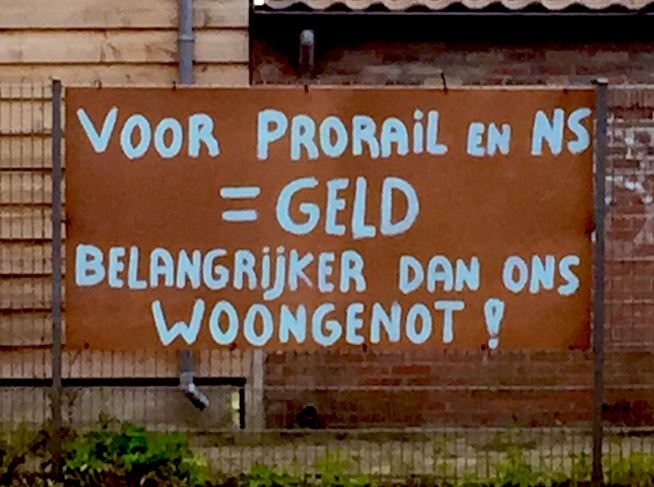 VOOR PRORAiL EN NS
= GELD
BELANGRIJKER DAN ONS
WOONGENOT !